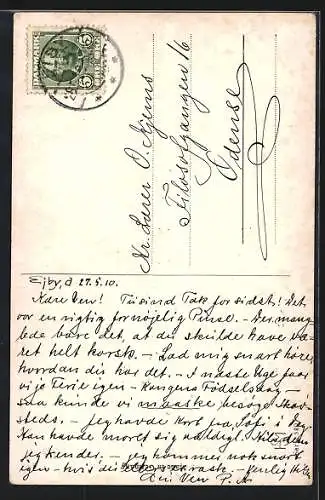 DANMARK
5 5
Hr. Lærer O. Hjems
Filosofgangen 16
Odense
Ejby, d 27.5.10.
Kære Ven! Tusind Tak for sidst! Det
var en rigtig fornøjelig Pinse. – Der mang-
lede bare det, at du skulde have væ-
ret helt korsk. – Lad mig snart høre,
hvordan du har det. – I næste Uge faar
vi jo Ferie igen – Kongens Fødselsdag –
saa kunde vi maaske besøge Skov-
steds. – jeg havde Kort fra Sofi i Dag
Han havde moret sig
jeg kender. – jeg kommer nok snart
igen – hvis du – Kærlig Hilsen
din Ven P. A.